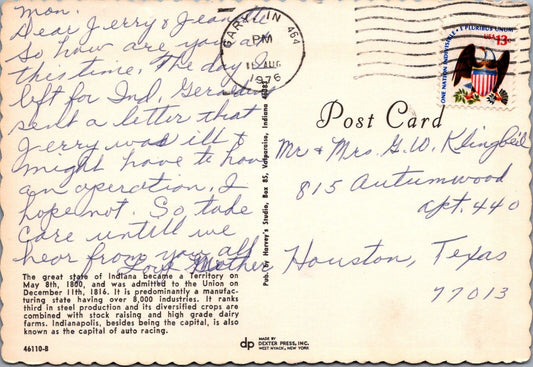 Mon.
Dear Jerry & Jeanette
So how are you at
this time. The day I
left for Ind. Geraldine
send a letter that
Jerry was ill &
might have to have
an operation. I
hope not. So take
care untell we
hear from you all
Love Mother
The great state of Indiana became a Territory on
May 8th, 1800, and was admitted to the Union on
December 11th, 1816. It is predominantly a manufac-
turing state having over 8,000 industries. It ranks
third in steel production and its diversified crops are
combined with stock raising and high grade dairy
farms. Indianapolis, besides being the capital, is also
known as the capital of auto racing.
46110-B
Pub. by Harver's Studio, Box 85, Valparaiso, Indiana 46383
dp MADE BY
DEXTER PRESS, INC.
WEST NYACK, NEW YORK
GARY, IN 464
PM
AUG
1976
ONE NATION INDIVISIBLE • E PLURIBUS UNUM
USA 13c
Post Card
Mr & Mrs. G. W. Klingbeil
815 Autumwood
apt. 440
Houston, Texas
77013